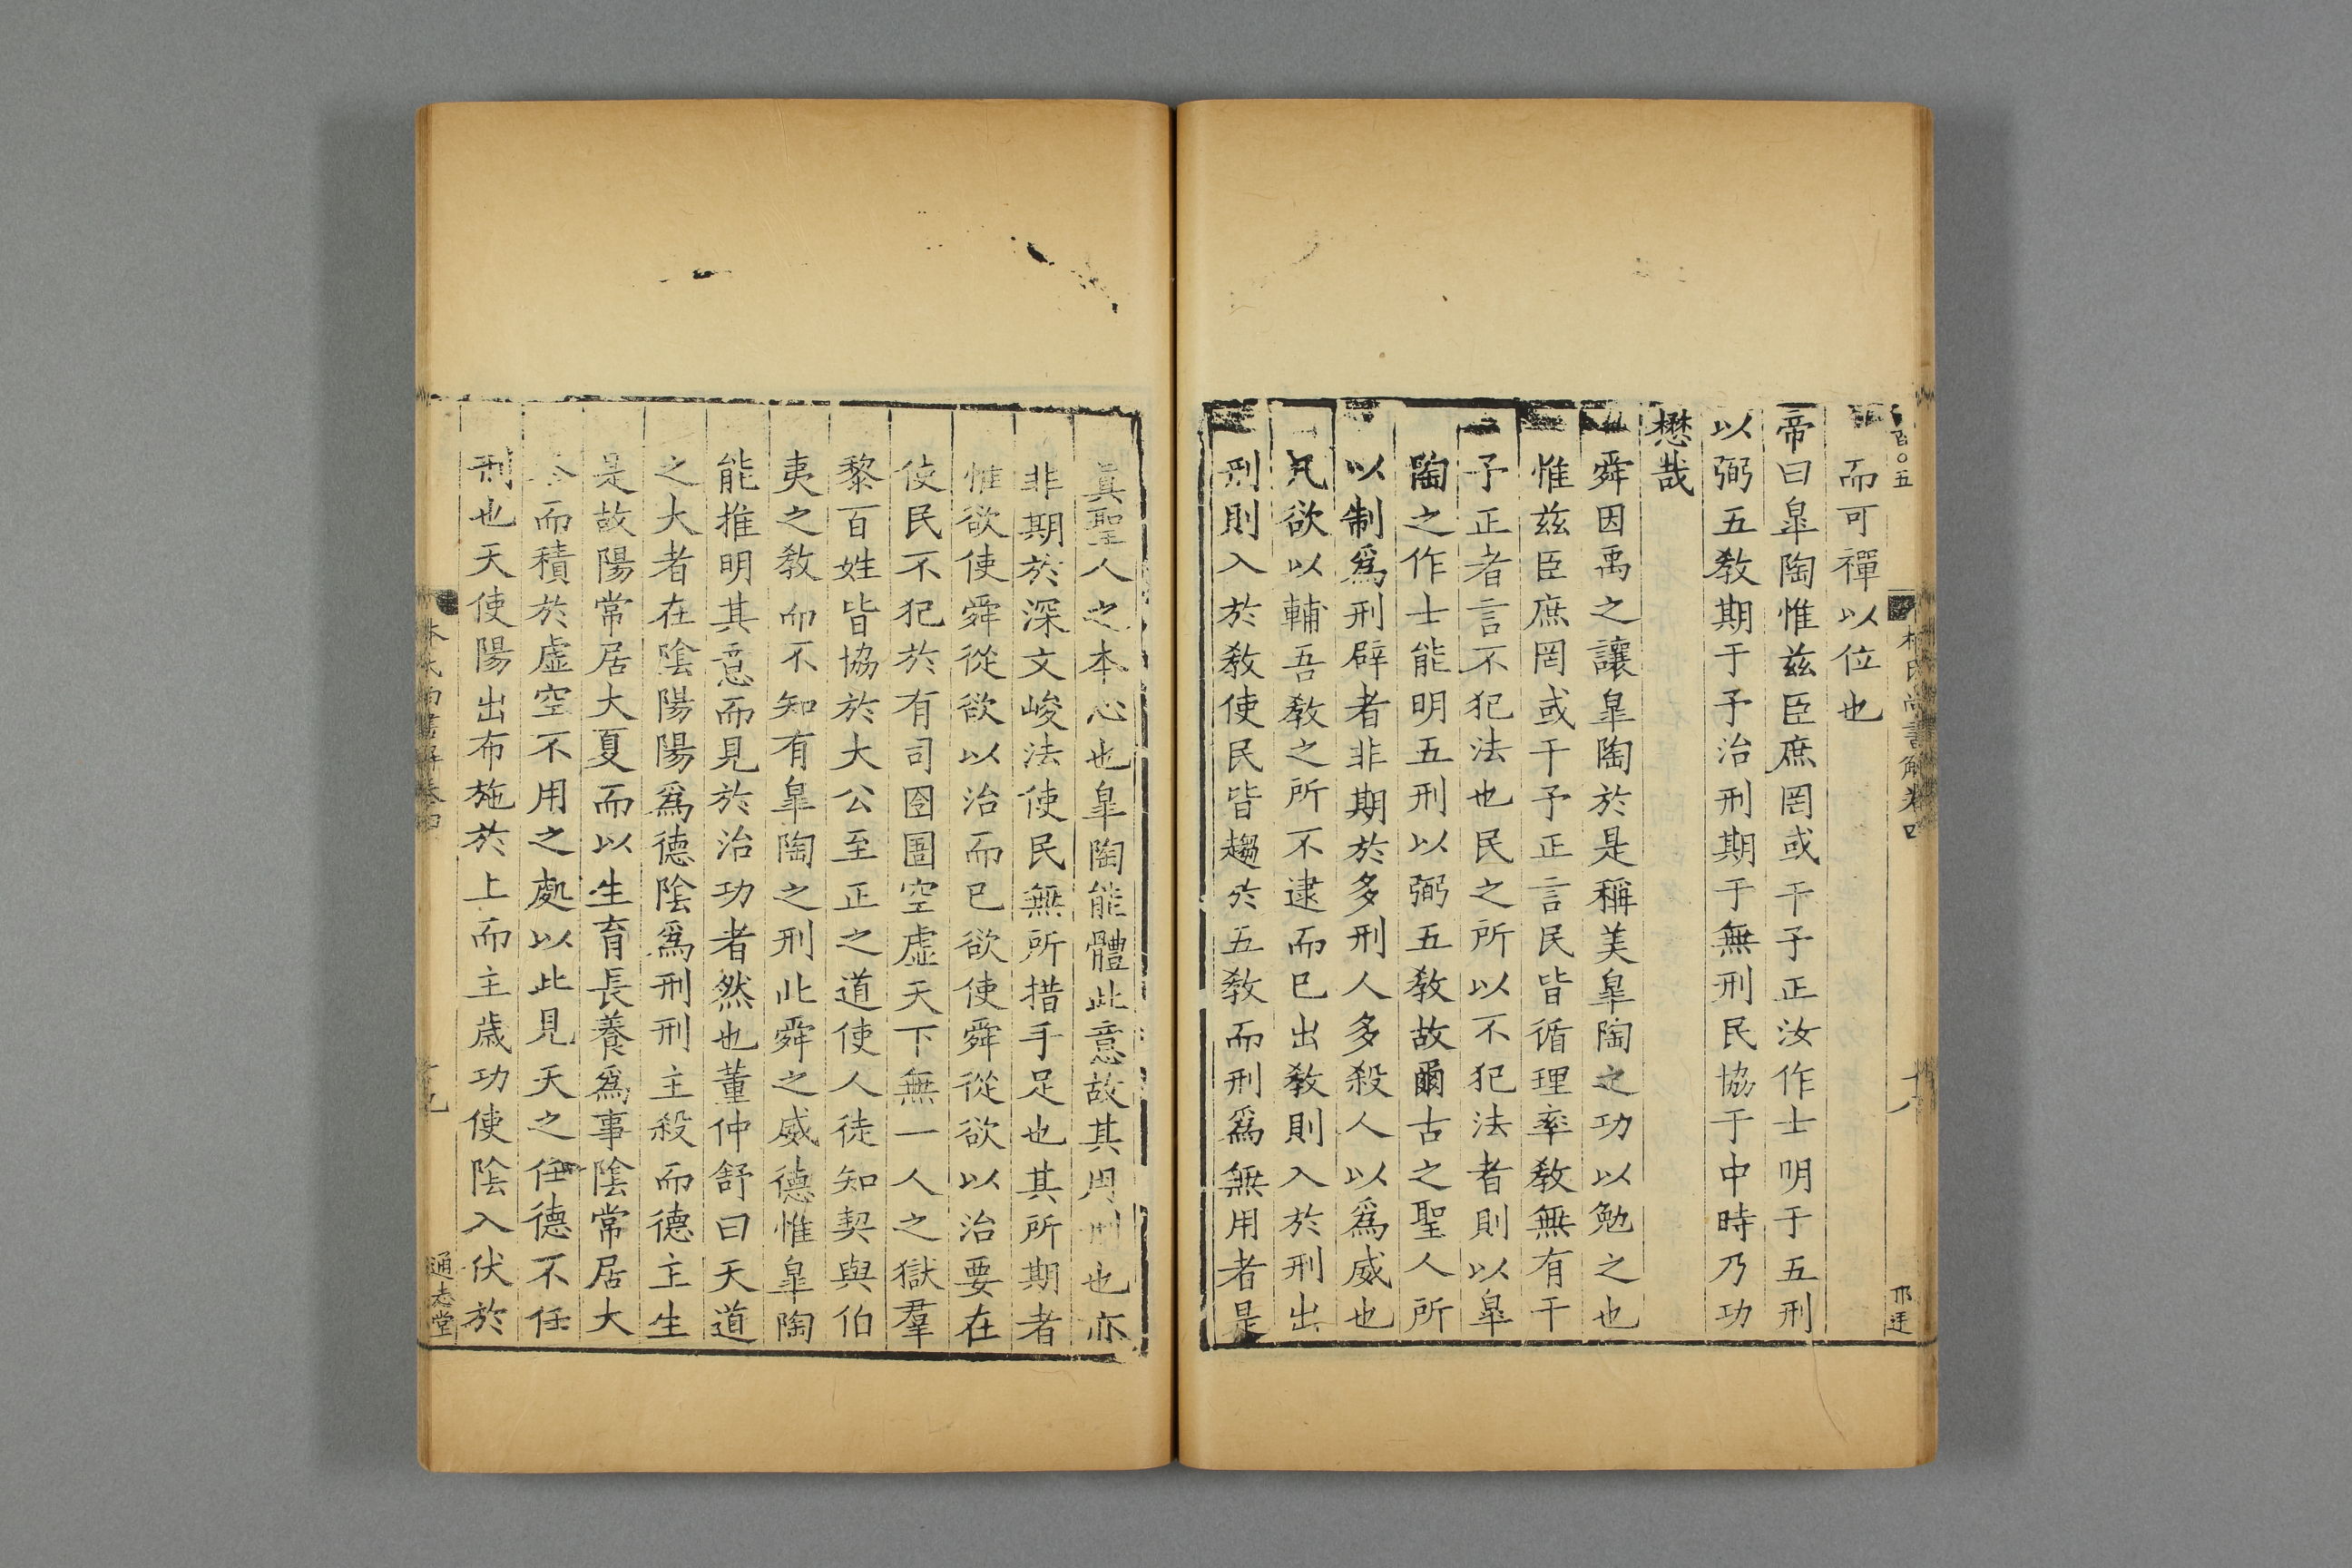 百〇五
林氏尚書解卷四
十八
而可禪以位也
帝曰皐陶惟兹臣庶罔或干予正汝作士明于五刑
以弼五教期于予治刑期于無刑民協于中時乃功
懋哉
舜因禹之讓皐陶於是稱美皐陶之功以勉之也
惟兹臣庶罔或干予正言民皆循理率教無有干
予正者言不犯法也民之所以不犯法者則以皐
陶之作士能明五刑以弼五教故爾古之聖人所
以制爲刑辟者非期於多刑人多殺人以爲威也
凡欲以輔吾教之所不逮而已出教則入於刑出
刑則入於教使民皆趨於五教而刑爲無用者是
眞聖人之本心也皐陶能體此意故其用刑也亦
非期於深文峻法使民無所措手足也其所期者
惟欲使舜從欲以治而已欲使舜從欲以治要在
使民不犯於有司囹圄空虛天下無一人之獄羣
黎百姓皆協於大公至正之道使人徒知契與伯
夷之教而不知有皐陶之刑此舜之威德惟皐陶
能推明其意而見於治功者然也董仲舒曰天道
之大者在陰陽陽爲德陰爲刑刑主殺而德主生
是故陽常居大夏而以生育長養爲事陰常居大
冬而積於虛空不用之處以此見天之任德不任
刑也天使陽出布施於上而主歲功使陰入伏於
林氏尚書解卷四
十九
通志堂